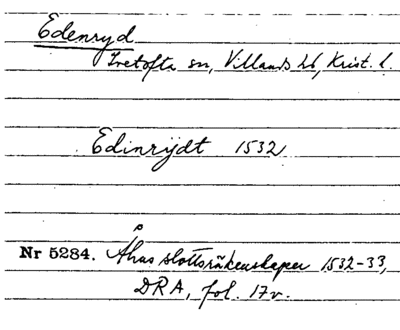 Edenryd
Ivetofta sn, Villands hd, Krist. l.
Edinrÿdt 1532
Nr 5284. Åhus slottsräkenskaper 1532-33,
DRA, fol. 17v.